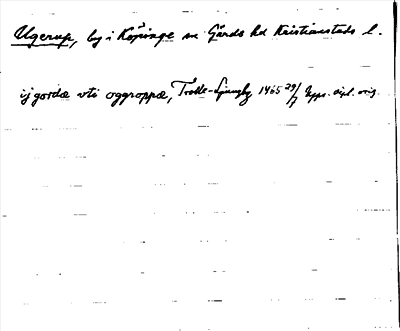 Ugerup, by i Köpinge sn Gärds hd Kristianstads l.
ij gorda vti oggroppæ, Trolle-Ljungby 1465 29/7 Upps. dipl. orig.